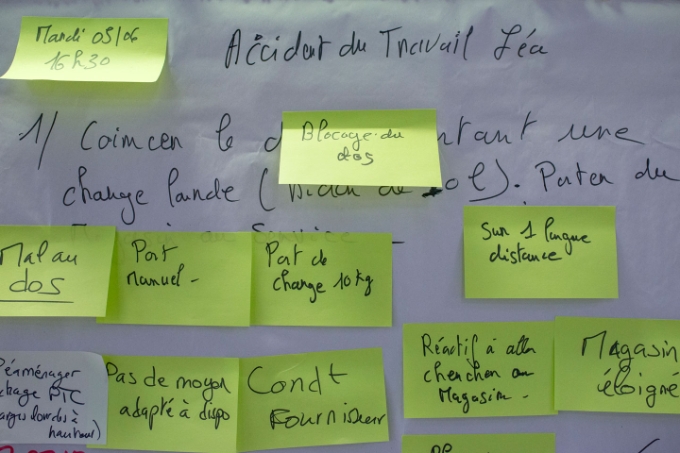 Mardi 05/06
16h30
Accident du Travail Léa
1/ Coincer le d
Blocage du
dos
tant une
charge lourde (
ol). Porter du
Mal au
dos
Port
Manuel -
Port de
charge 10 kg
Sur 1 longue
distance
Réaménager
charges lourdes à
hauteur)
Pas de moyen
adapté à dispo
Condt
Fournisseur
Réactif à aller
chercher au
Magasin -
Magasin
éloigné